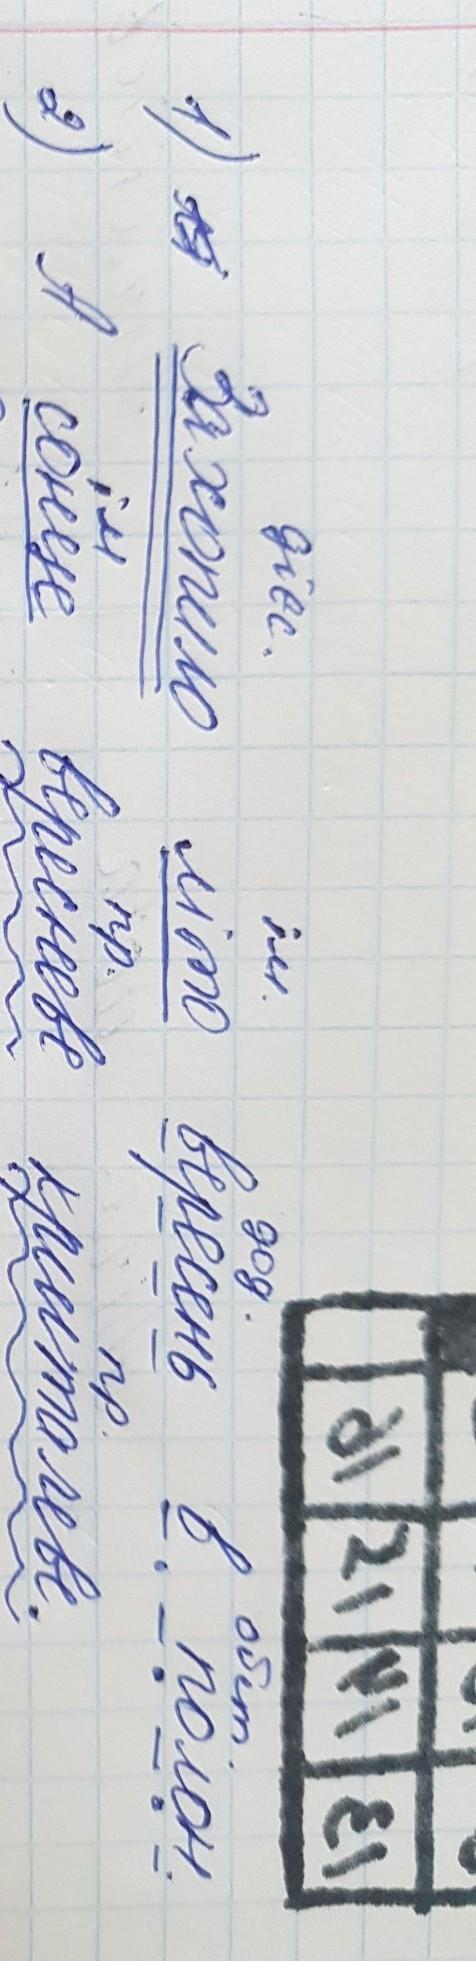 дієс. ім. дод. обст.
1) Захопило літо вересень в полон
ім пр. пр.
2) А сонце вересневе кришталеве.
13 14 15 16